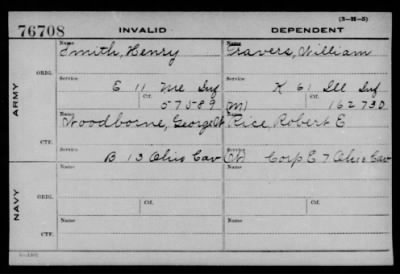 (3-H-5)
76708 INVALID DEPENDENT
Name Name
Smith, Henry Travers, William
ORIG. Service Service
E 11 Me Inf K 61 Ill Inf
ARMY Ctf. Ctf.
57589 (M) 162730
Name Name
Woodborne, George Rice, Robert E
CTF. Service Service
B 13 Ohio Cav Corp E 7 Ohio Cav
Name Name
NAVY ORIG. Ctf. Ctf.
Name Name
CTF.